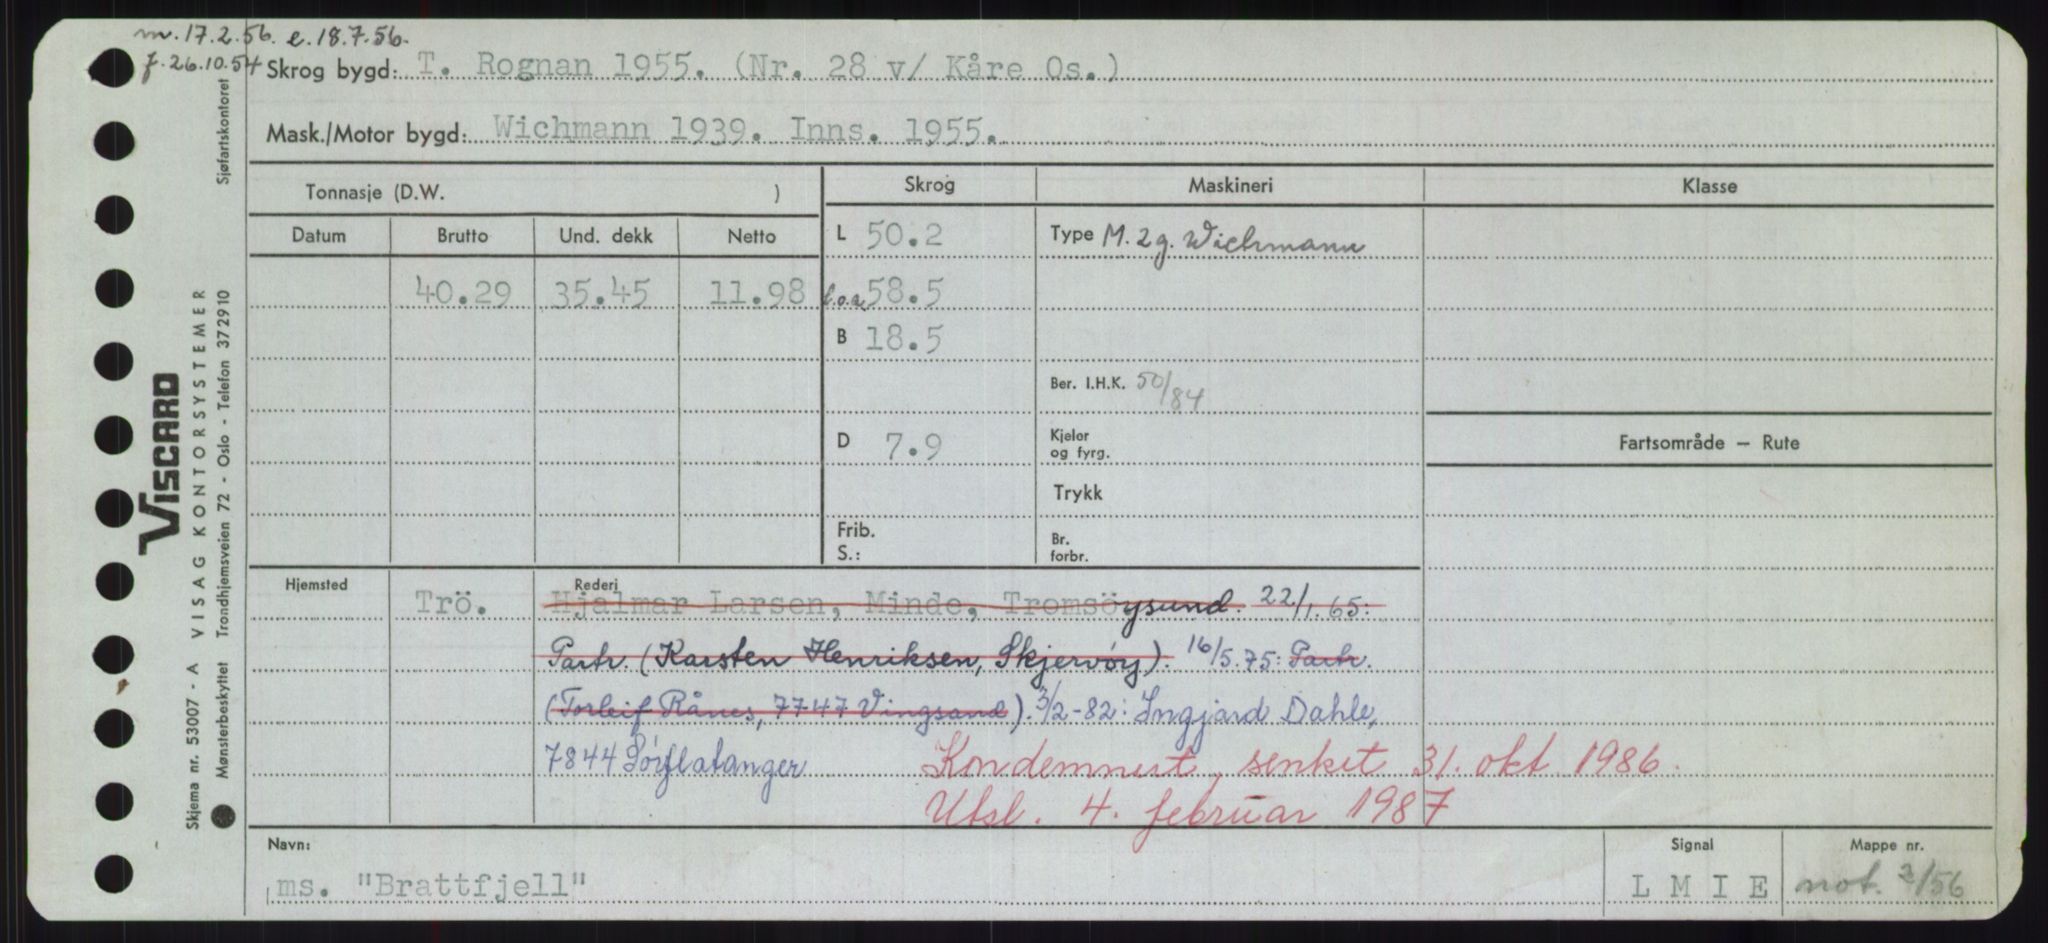 m. 17.2.56. e. 18.7.56.
f. 26.10.54 Skrog bygd: T. Rognan 1955. (Nr. 28 v/ Kåre Os.)
Mask./Motor bygd: Wichmann 1939. Inns. 1955.
Tonnasje (D.W. ) Skrog Maskineri Klasse
Datum Brutto Und. dekk Netto L 50.2 Type M. 2g. Wichmann
40.29 35.45 11.98 l.o.a. 58.5
B 18.5
Ber. I.H.K. 50/84
D 7.9 Kjeler og fyrg. Fartsområde – Rute
Trykk
Frib. S.: Br. forbr.
Hjemsted Rederi
Trö. Hjalmar Larsen, Minde, Tromsöysund. 22/1.65:
Partr. (Karsten Henriksen, Skjervøy). 16/5.75: Partr.
(Torleif Rånes, 7747 Vingsand). 3/2-82: Ingjard Dahle,
7844 Sørflatanger Kondemnert, senket 31. okt 1986.
Utsl. 4. februar 1987
Navn: Signal Mappe nr.
ms. "Brattfjell" L M I E not. 2/56
VISCARD
Skjema nr. 53007 - A VISAG KONTORSYSTEMER
Mønsterbeskyttet Trondhjemsveien 72 - Oslo - Telefon 372910 Sjøfartskontoret